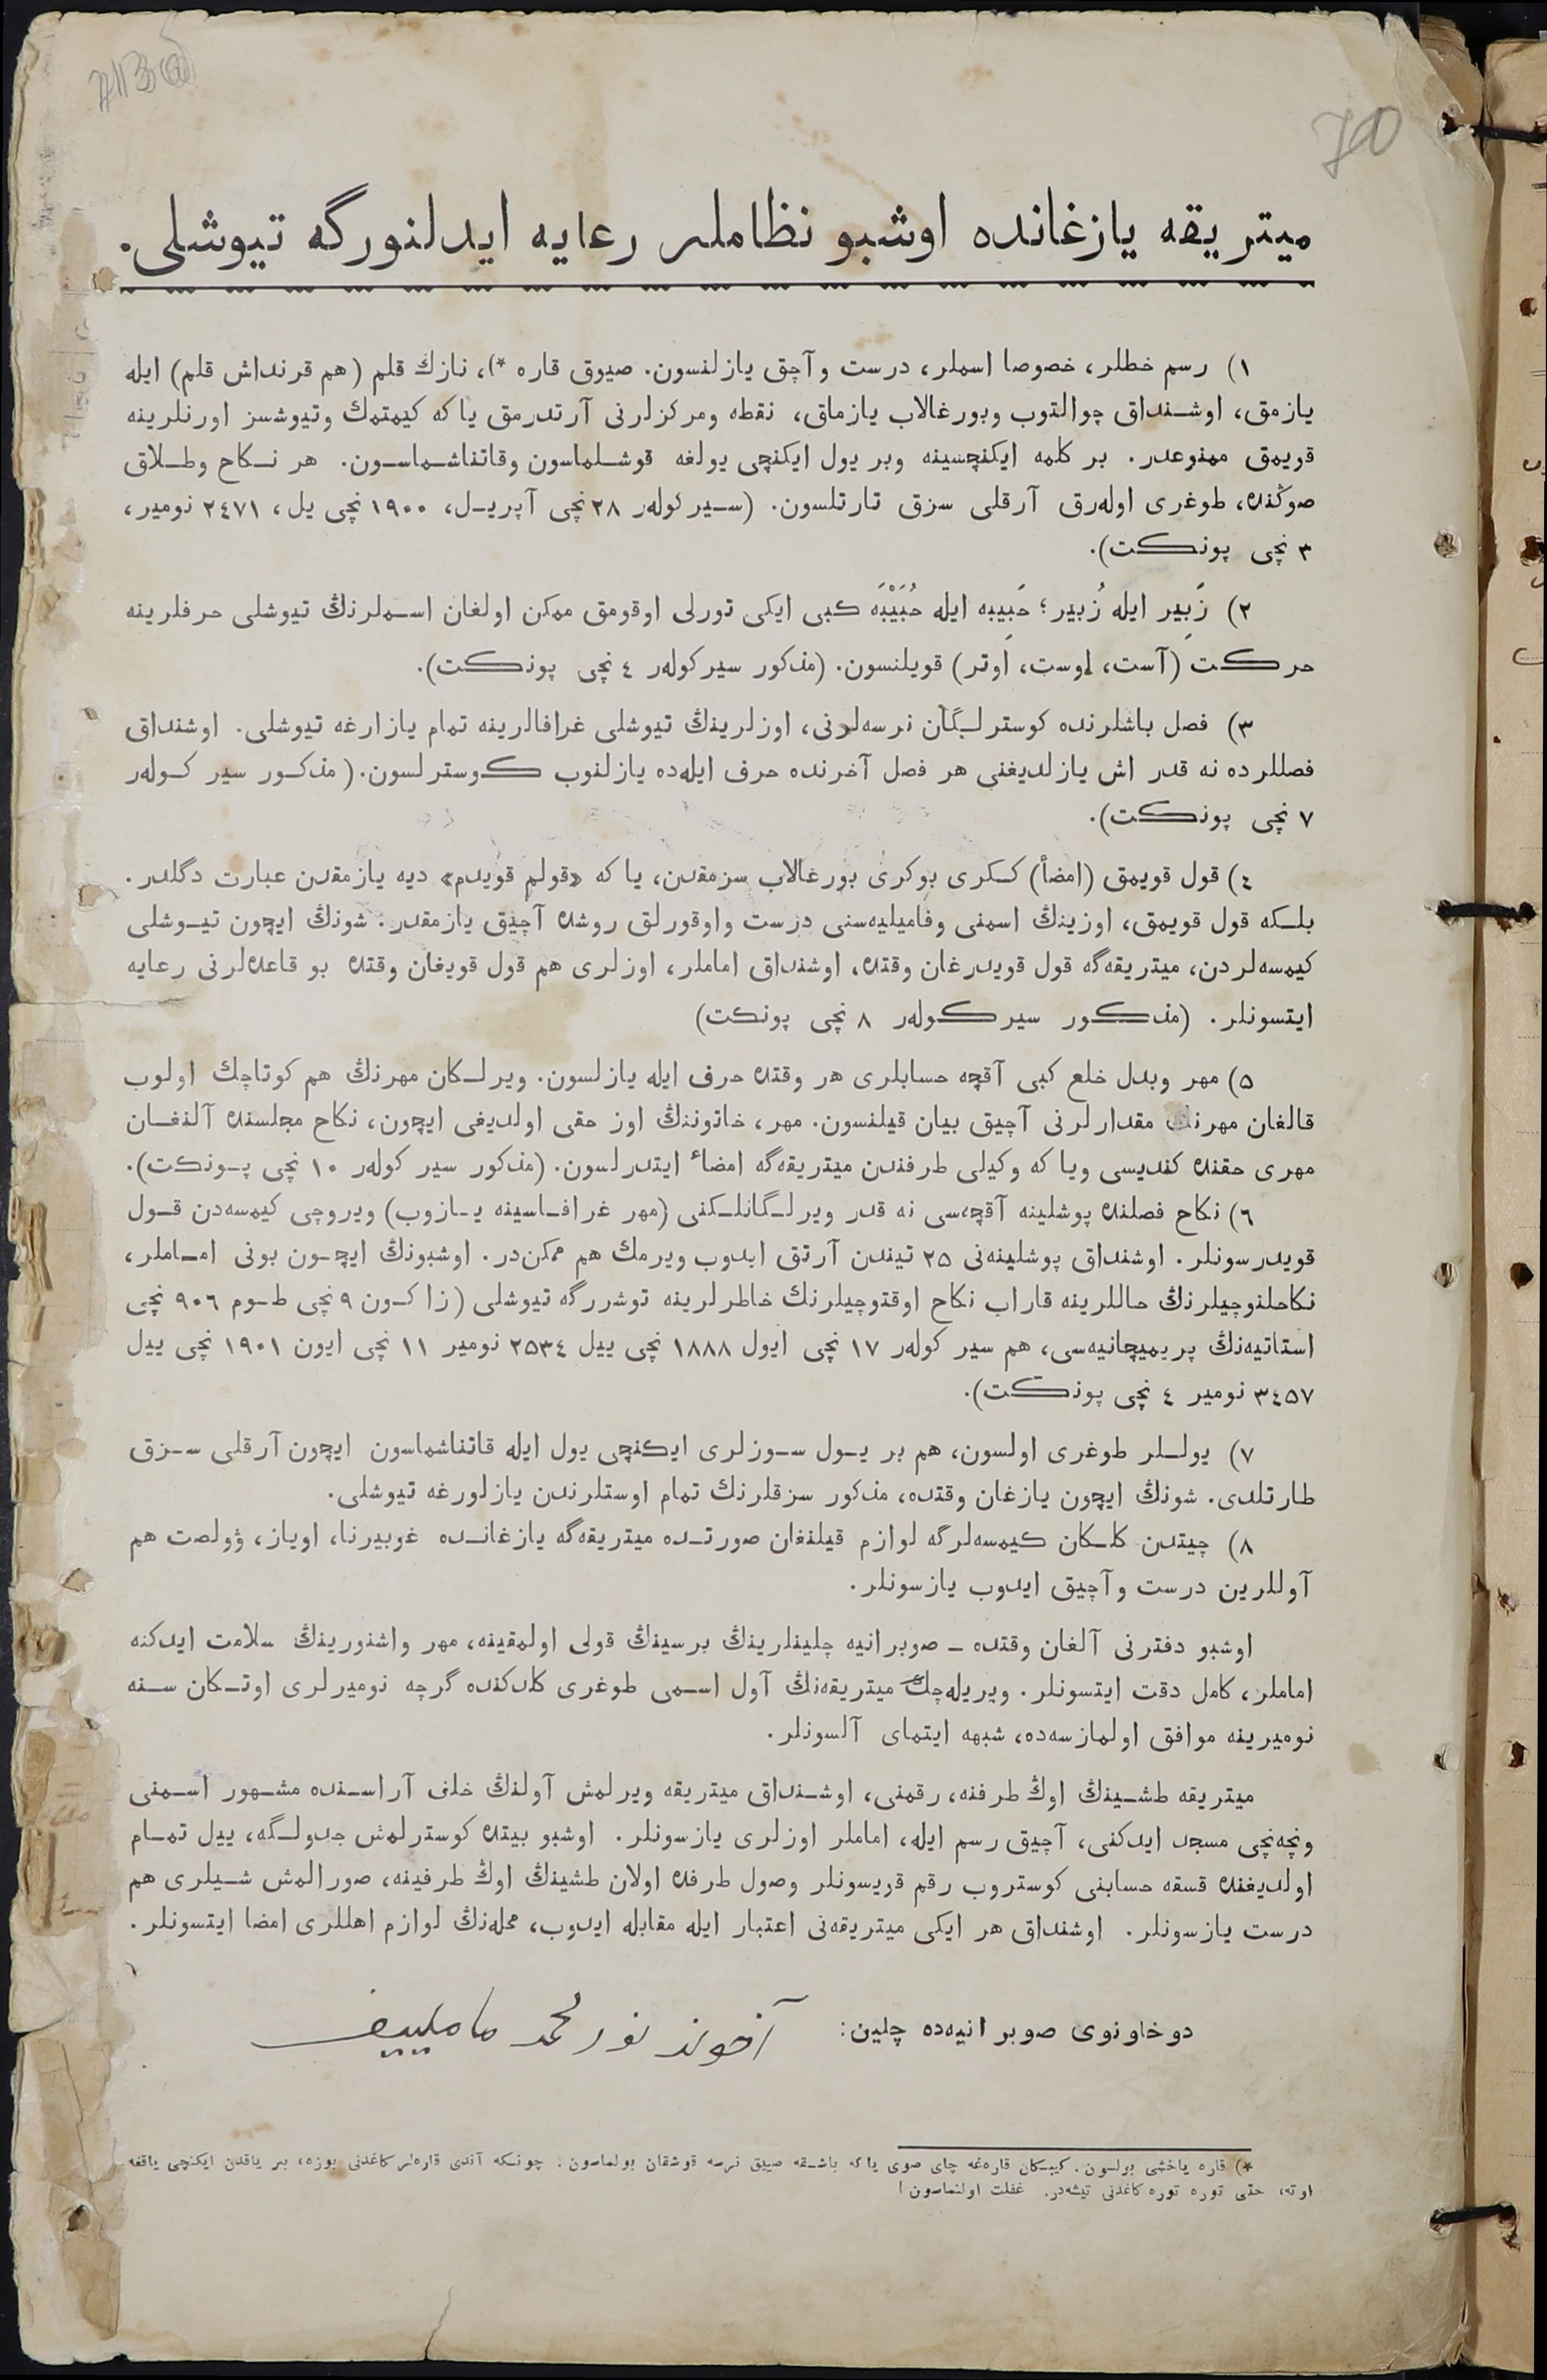 70
میتریقه یازغانده اوشبو نظاملر رعایه ایدلنورگه تیوشلی.
۱) رسم خطلر، خصوصا اسملر، درست وآچق یازلنسون. صیوق قاره *)، نازك قلم (هم قرنداش قلم) ایله
یازمق، اوشنداق چوالتوب وبورغالاب یازماق، نقطه ومرکزلرنی آرتدرمق یا که کیمتمك وتیوشسز اورنلرینه
قویمق ممنوعدر. بر کلمه ایکنچسینه وبر یول ایکنچی یولغه قوشلماسون وقاتناشماسون. هر نکاح وطلاق
صوڭنده، طوغری اوله‌رق آرقلی سزق تارتلسون. (سیرکوله‌ر ۲۸ نچی آپریل، ۱۹۰۰ نچی یل، ۲٤۷۱ نومیر،
۳ نچی پونکت).
۲) زَبِیر ایله زُبیر؛ حَبِیبه ایله حُبَیْبَه کبی ایکی تورلی اوقومق ممکن اولغان اسملرنڭ تیوشلی حرفلرینه
حرکت (آست، اوست، اوتر) قویلنسون. (مذکور سیرکوله‌ر ٤ نچی پونکت).
۳) فصل باشلرنده کوسترلگان نرسه‌لرنی، اوزلرینڭ تیوشلی غرافالرینه تمام یازارغه تیوشلی. اوشنداق
فصللرده نه قدر اش یازلدیغنی هر فصل آخرنده حرف ایله‌ده یازلنوب کوسترلسون. (مذکور سیر کوله‌ر
۷ نچی پونکت).
٤) قول قویمق (امضأ) ککری بوکری بورغالاب سزمقدن، یا که «قولم قویدم» دیه یازمقدن عبارت دگلدر.
بلکه قول قویمق، اوزینڭ اسمنی وفامیلیه‌سنی درست واوقورلق روشده آچیق یازمقدر. شونڭ ایچون تیوشلی
کیمسه‌لردن، میتریقه‌گه قول قویدرغان وقتده، اوشنداق اماملر، اوزلری هم قول قویغان وقتده بو قاعده‌لرنی رعایه
ایتسونلر. (مذکور سیرکوله‌ر ۸ نچی پونکت)
۵) مهر وبدل خلع کبی آقچه حسابلری هر وقتده حرف ایله یازلسون. ویرلکان مهرنڭ هم کوتاچك اولوب
قالغان مهرنڭ مقدارلرنی آچیق بیان قیلنسون. مهر، خاتوننڭ اوز حقی اولدیغی ایچون، نکاح مجلسنده آلنغان
مهری حقنده کندیسی ویا که وکیلی طرفندن میتریقه‌گه امضاء ایتدرلسون. (مذکور سیر کوله‌ر ۱۰ نچی پونکت).
٦) نکاح فصلنده پوشلینه آقچه‌سی نه قدر ویرلگانلکنی (مهر غرافاسینه یازوب) ویروچی کیمسه‌دن قول
قویدرسونلر. اوشنداق پوشلینه‌نی ۲۵ تیندن آرتق ایدوب ویرمك هم ممکن‌در. اوشبونڭ ایچون بونی اماملر،
نکاحلنوچیلرنڭ حاللرینه قاراب نکاح اوقتوچیلرنك خاطرلرینه توشررگه تیوشلی (زاکون ۹ نچی طوم ۹۰٦ نچی
استاتیه‌نڭ پریمیچانیه‌سی، هم سیر کوله‌ر ۱۷ نچی ایول ۱۸۸۸ نچی ییل ۲۵۳٤ نومیر ۱۱ نچی ایون ۱۹۰۱ نچی ییل
۳٤۵۷ نومیر ٤ نچی پونکت).
۷) یوللر طوغری اولسون، هم بر یول سوزلری ایکنچی یول ایله قاتناشماسون ایچون آرقلی سزق
طارتلدی. شونڭ ایچون یازغان وقتده، مذکور سزقلرنك تمام اوستلرندن یازلورغه تیوشلی.
۸) چیتدن کلکان کیمسه‌لرگه لوازم قیلنغان صورتده میتریقه‌گه یازغانده غوبیرنا، اویاز، ۋولصت هم
آوللرین درست وآچیق ایدوب یازسونلر.
اوشبو دفترنی آلغان وقتده – صوبرانیه چلینلرینڭ برسینڭ قولی اولمقینه، مهر واشنورینڭ سلامت ایدکنه
اماملر، کامل دقت ایتسونلر. ویریله‌چك میتریقه‌نڭ آول اسمی طوغری کلدکنده گرچه نومیرلری اوتکان سنه
نومیرینه موافق اولمازسه‌ده، شبهه ایتمای آلسونلر.
میتریقه طشینڭ اوڭ طرفنه، رقمنی، اوشنداق میتریقه ویرلمش آولنڭ خلق آراسنده مشهور اسمنی
ونچه‌نچی مسجد ایدکنی، آچیق رسم ایله، اماملر اوزلری یازسونلر. اوشبو بیتده کوسترلمش جدولگه، ییل تمام
اولدیغنده قسقه حسابنی کوستروب رقم قویسونلر وصول طرفده اولان طشینڭ اوڭ طرفینه، صورالمش شیلری هم
درست یازسونلر. اوشنداق هر ایکی میتریقه‌نی اعتبار ایله مقابله ایدوب، محله‌نڭ لوازم اهللری امضا ایتسونلر.
دوخاونوی صوبرانیه‌ده چلین: آخوند نورمحمد ماملییف
*) قاره یاخشی بولسون. کیبکان قاره‌غه چای صوی یا که باشقه صییق نرسه قوشقان بولماسون؛ چونکه آندی قاره‌لر کاغدنی بوزه، بر یاقدن ایکنچی یاقغه
اوته، حتی توره توره کاغدنی تیشه‌در. غفلت اولنماسون!